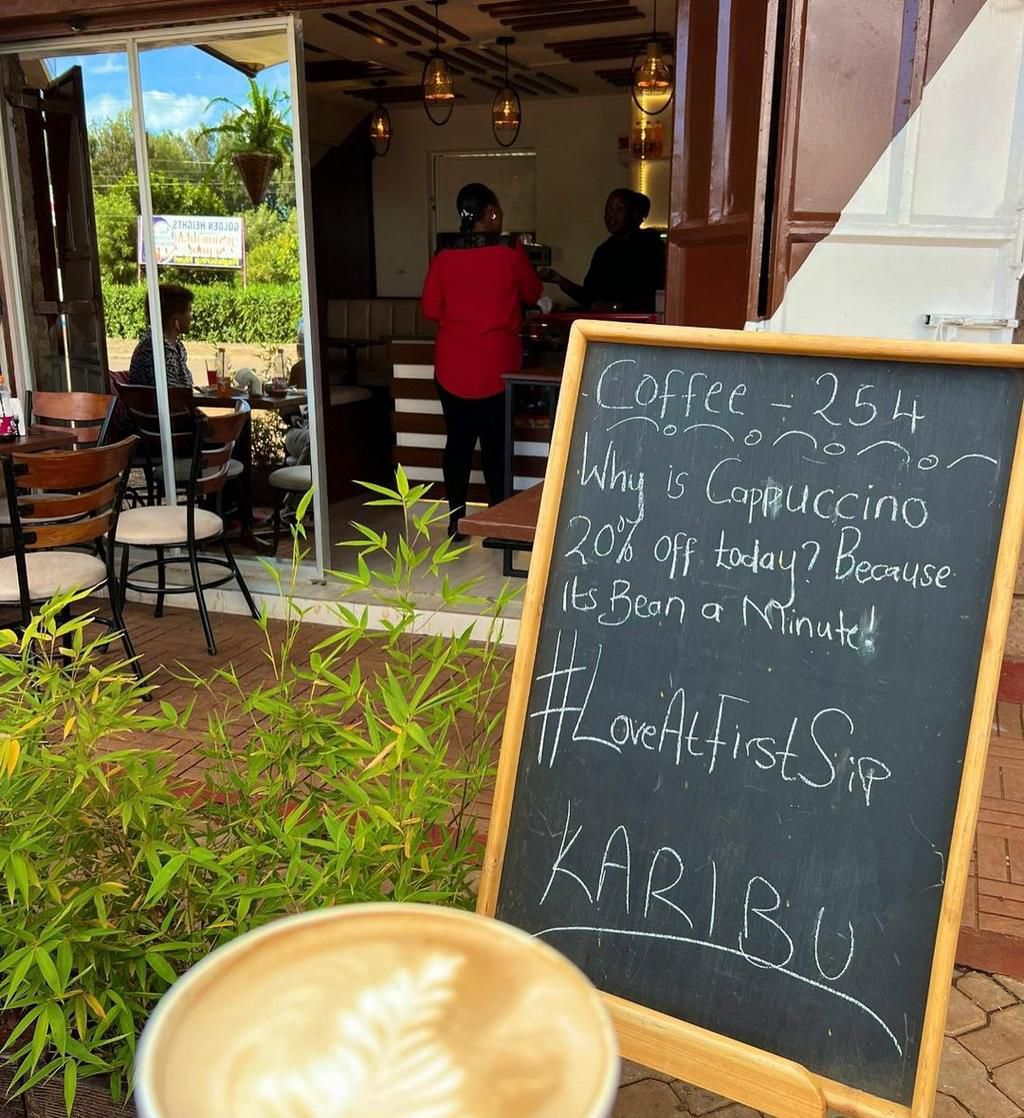 GOLDEN HEIGHTS
Coffee - 254
Why is Cappuccino
20% off today? Because
Its Bean a Minute!
#LoveAtFirstSip
KARIBU